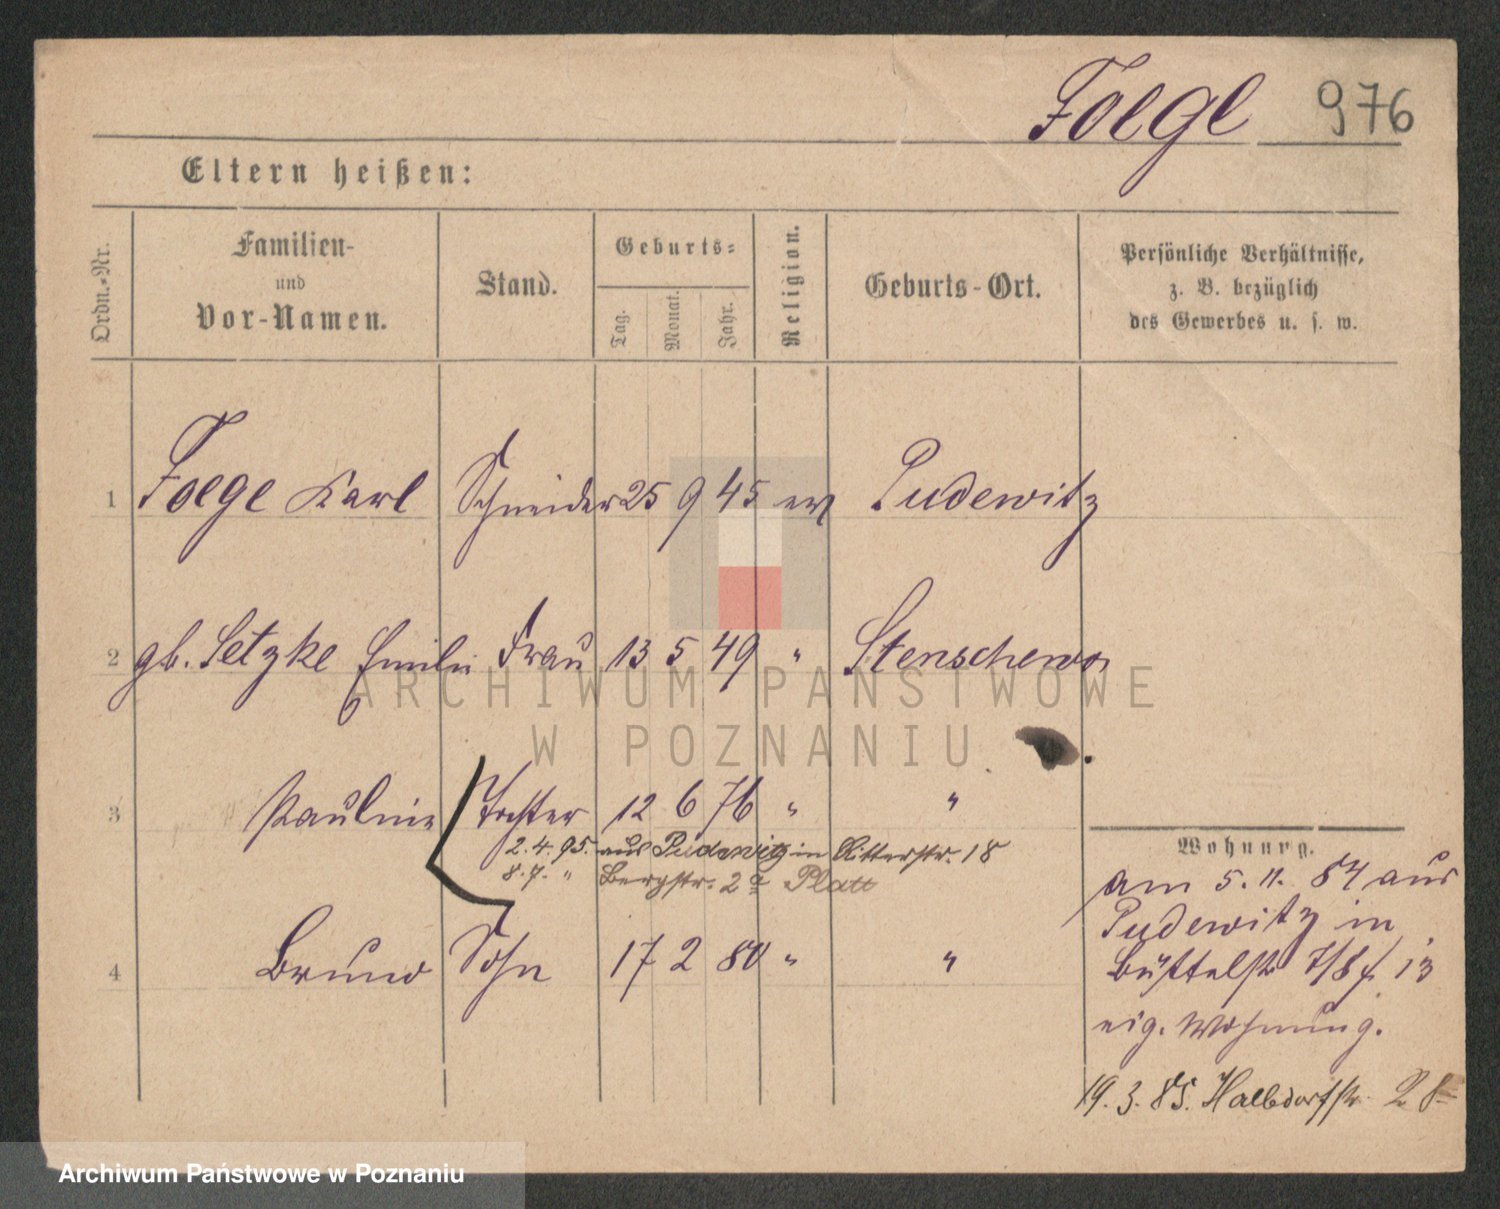 Foege 976
Eltern heißen:
Ordn.-Nr.
Familien-
und
Vor-Namen.
Stand.
Geburts-
Tag.
Monat.
Jahr.
Religion.
Geburts-Ort.
Persönliche Verhältnisse,
z. B. bezüglich
des Gewerbes u. s. w.
1 Foege Karl Schneider 25 9 45 ev Pudewitz
2 gb. Setzke Emilie Frau 13 5 49 " Stenschewo
3 Pauline Tochter 12 6 76 " "
2.4.95. aus Pudewitz in Ritterstr. 18
8.7. " Bergstr. 2a Platt
4 Bruno Sohn 17 2 80 " "
Wohnung.
am 5.11. 84 aus
Pudewitz in
Büttelstr 7/8 f. 13
eig. Wohnung.
19.3.85. Halbdorfstr.
ARCHIWUM PAŃSTWOWE
W POZNANIU
Archiwum Państwowe w Poznaniu